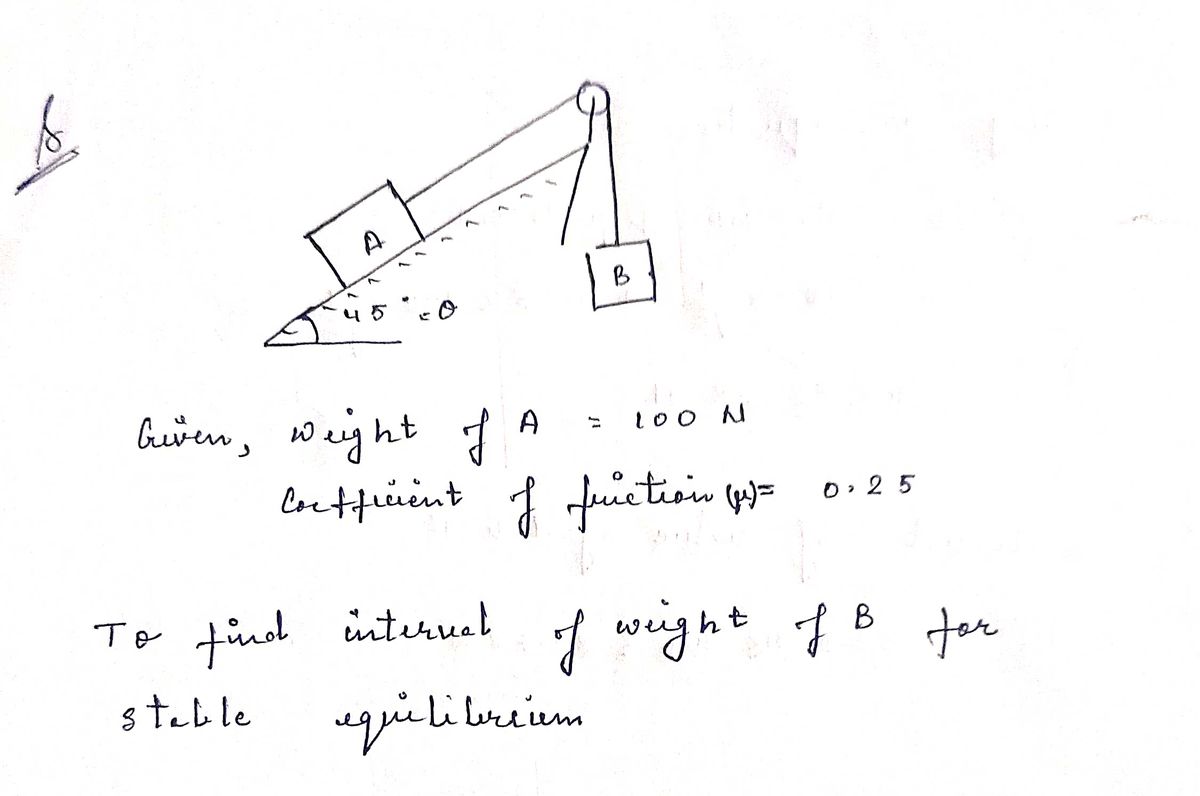 A
B
45° = θ
Given, weight of A = 100 N
Coefficient of friction (μ) = 0.25
To find interval of weight of B for
stable equilibrium